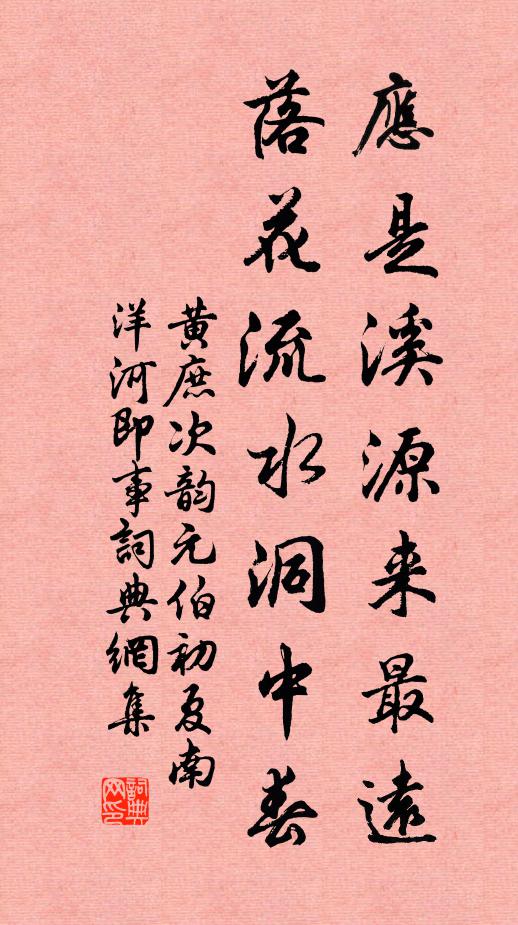 應是溪源来最遠
落花流水洞中春
黃庶次韵元伯初夏南
洋河即事詞典網集
詞典网印